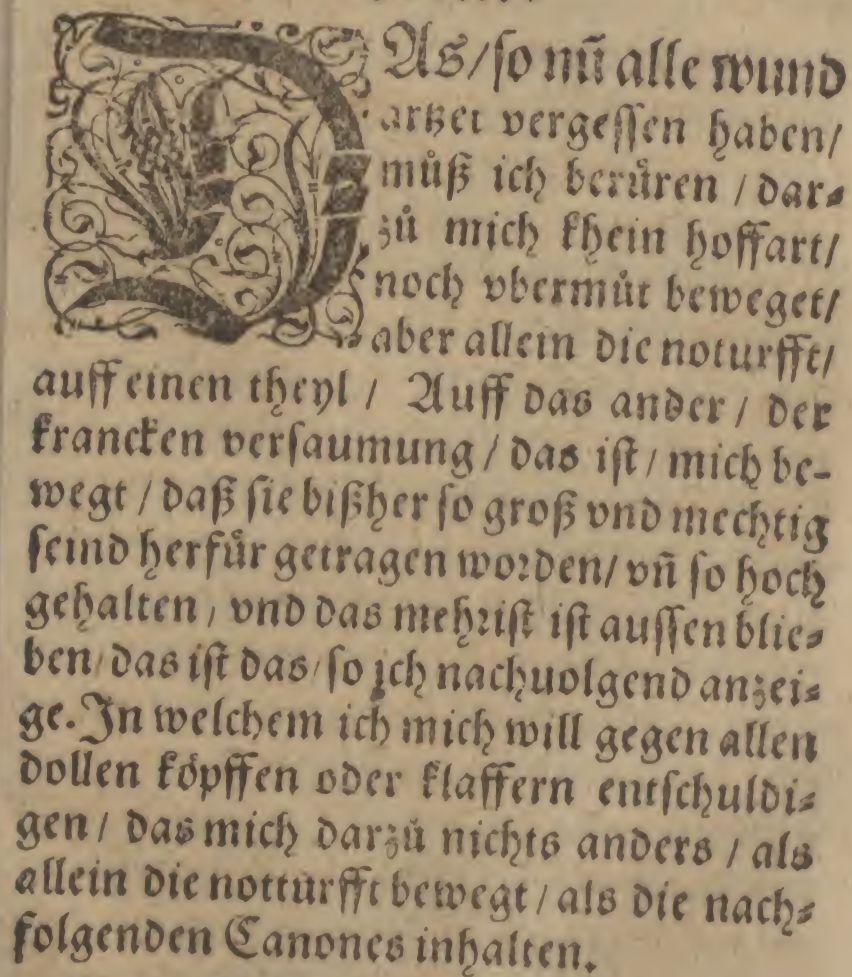 DAs/so nũ alle wund
artzet vergessen haben/
můß ich berůren / dar⸗
zů mich khein hoffart/
noch vbermůt beweget/
aber allein die noturfft/
auff einen theyl / Auff das ander / der
krancken versaumung / das ist / mich be-
wegt / daß sie bißher so groß vnd mechtig
seind herfůr getragen worden/ vñ so hoch
gehalten / vnd das mehrist ist aussen blie⸗
ben/ das ist das/ so ich nachuolgend anzei⸗
ge. In welchem ich mich will gegen allen
dollen köpffen oder klaffern entschuldi⸗
gen / das mich darzů nichts anders / als
allein die notturfft bewegt / als die nach⸗
folgenden Canones inhalten.